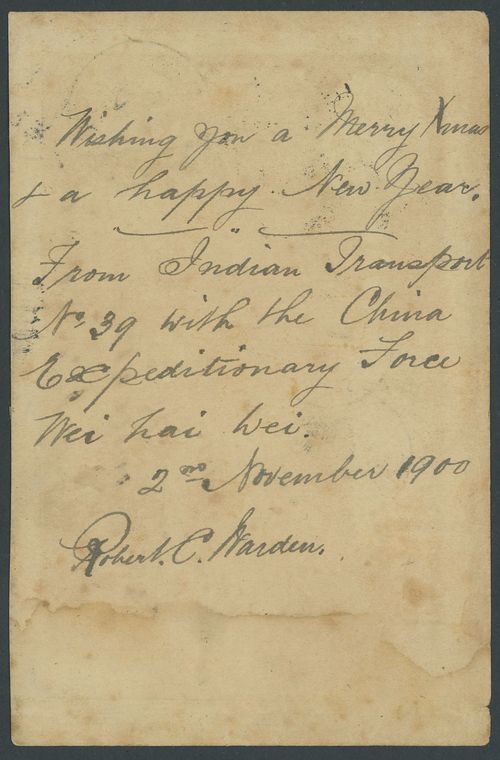 Wishing you a Merry Xmas
& a happy New Year.
From Indian Transport
No 39 with the China
Expeditionary Force
Wei hai Wei.
2nd November 1900
Robert. C. Warden.